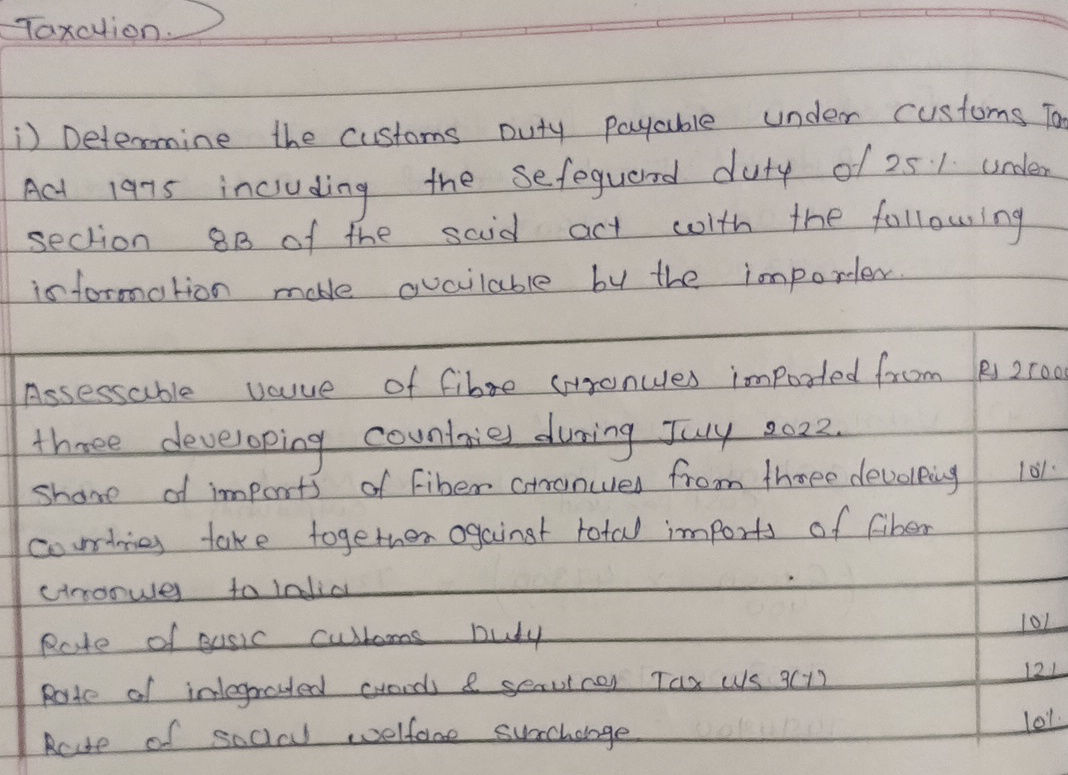 Taxation.
i) Determine the customs Duty Payable under customs
Act 1975 including the Sefeguard duty of 25 % under
section 8B of the said act with the following
information made available by the importer.
Assessable value of fibre Granules imported from Rs
three developing countries during July 2022.
Share of imports of Fiber Granules from three develoeing 10%
countries take together against total imports of fiber
Granules to India
Rate of Basic customs Duty 10%
Rate of integrated Goods & services Tax u/s 3(7) 12%
Rate of social welfare surcharge 10%